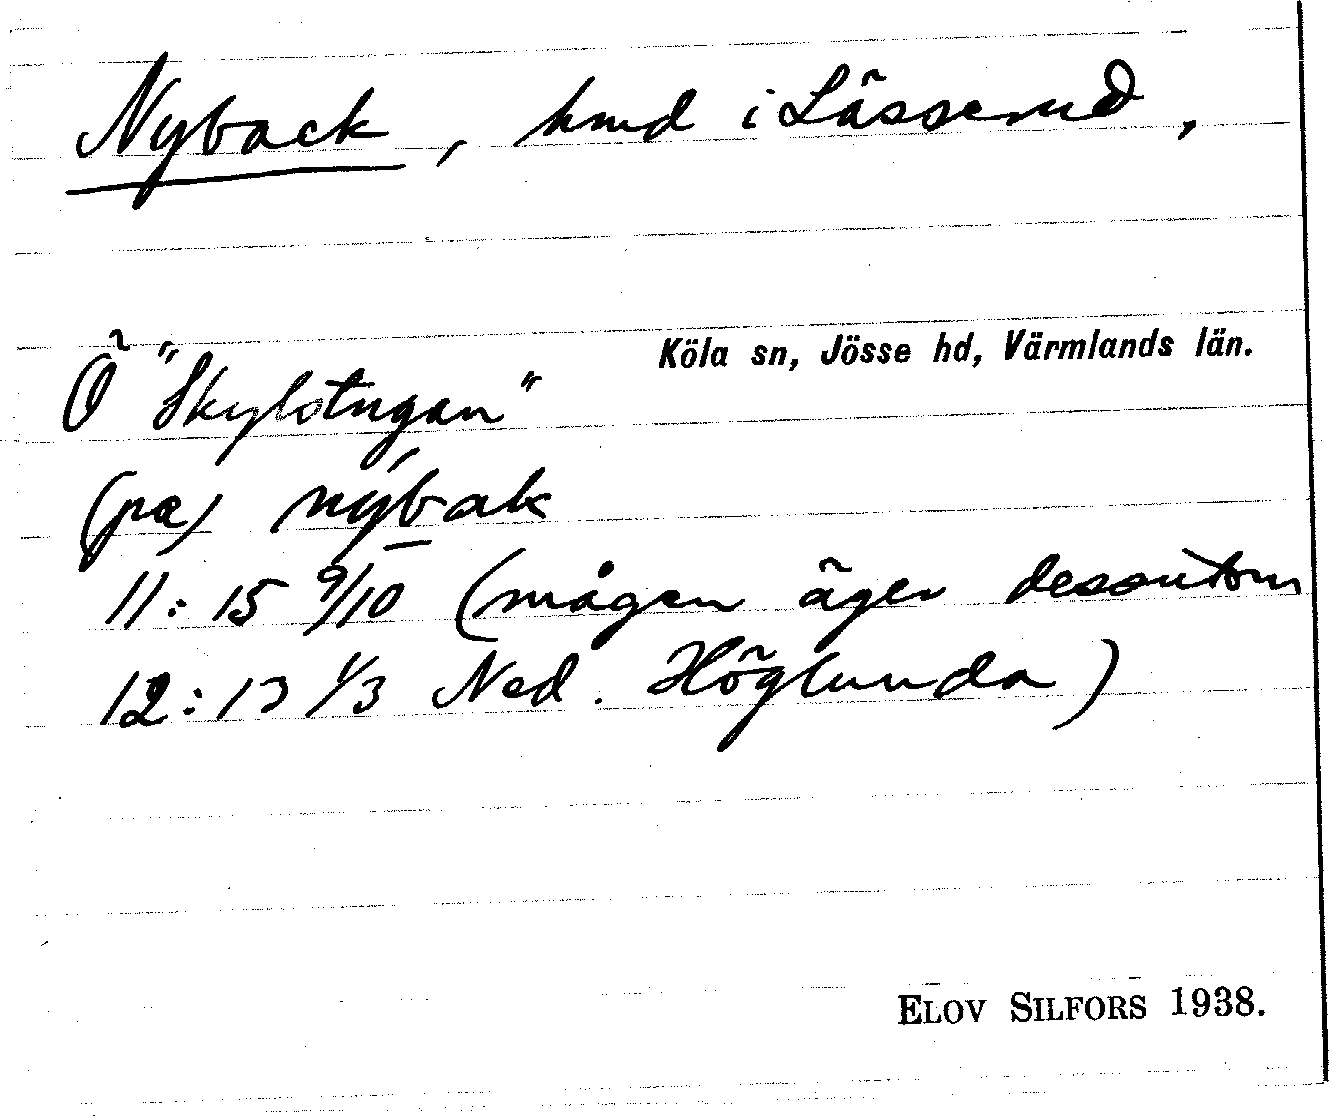 Nyback, hmd i Lässerud,
Köla sn, Jösse hd, Värmlands län.
Ö "Skylstugan"
(pa) nýbak
11:15 9/10 (mågen äger dessutom
12:13 1/3 Ned. Höglunda)
ELOV SILFORS 1938.